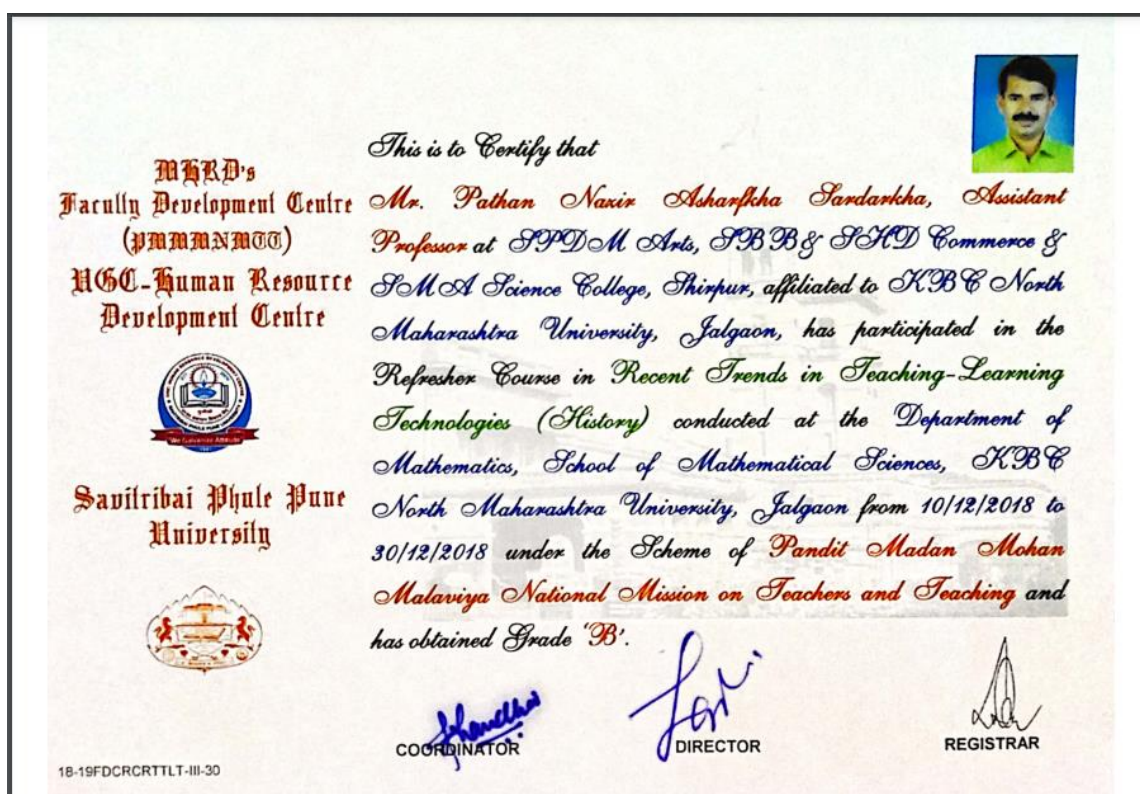 MHRD's
Faculty Development Centre
(PMMMNMTT)
UGC-Human Resource
Development Centre
"We Galvanise Attitude"
Savitribai Phule Pune
University
This is to Certify that
Mr. Pathan Nazir Asharfkha Sardarkha, Assistant
Professor at SPDM Arts, SBB & SHD Commerce &
SMA Science College, Shirpur, affiliated to KBC North
Maharashtra University, Jalgaon, has participated in the
Refresher Course in Recent Trends in Teaching-Learning
Technologies (History) conducted at the Department of
Mathematics, School of Mathematical Sciences, KBC
North Maharashtra University, Jalgaon from 10/12/2018 to
30/12/2018 under the Scheme of Pandit Madan Mohan
Malaviya National Mission on Teachers and Teaching and
has obtained Grade 'B'.
COORDINATOR
DIRECTOR
REGISTRAR
18-19FDCRCRTTLT-III-30